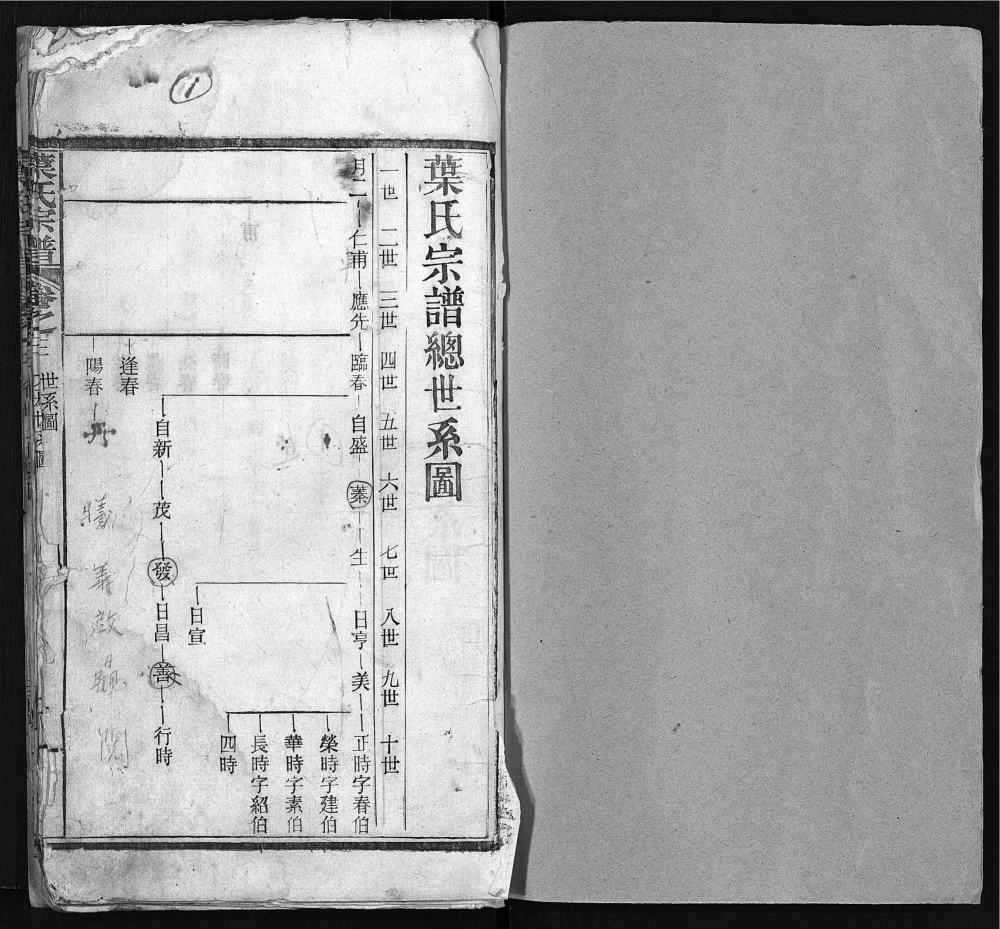 葉氏宗譜總世系圖
一世 二世 三世 四世 五世 六世 七世 八世 九世 十世
月二 仁甫 應先 臨春 自盛 蓁 生 日亨 美 正時字春伯
榮時字建伯
華時字素伯
長時字紹伯
四時
日宣
自新 茂 發 日昌 善 行時
逢春
陽春
義啟觀閱
葉氏宗譜 卷之三 世系圖
1